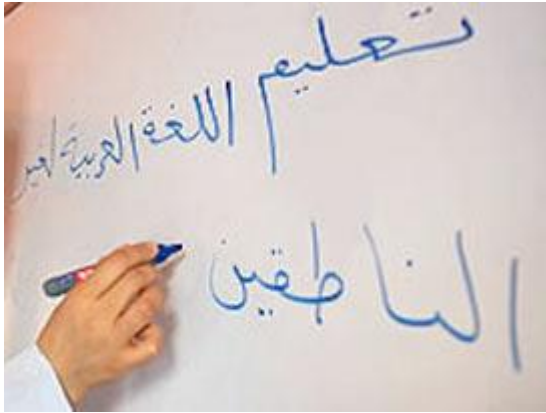 تعليم اللغة العربية لغير
الناطقين